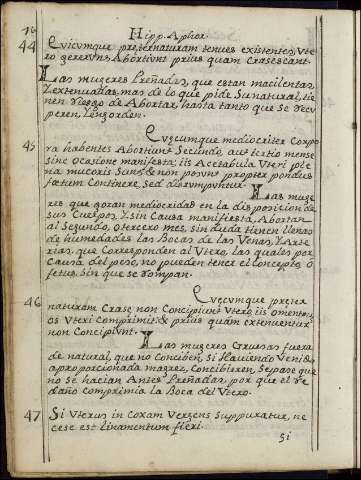 76
Hipp. Aphor.
44 Quicumque preternaturam tenues existentes, Vte
ro gererunt Abortiunt prius quam Crasescant.
Las mugeres Preñadas, que estan macilentas,
Y extenuadas, mas de lo que pide Su natural, tie
nen riesgo de Abortar, hasta tanto que Se recu
peren, Y engorden.
45 Quecumque mediocriter Corpo
ra habentes Abortiunt Secundo, aut tertio mense
sinc ocasione manifesta; iis Acetabula Vteri ple
na mucoris Sunt, & non posunt propter pondus
foetum Continere, Sed abrumpuntur.
Las muge
res que gozan mediocridad en la disposicion de
sus Cuerpos, Y sin Causa manifiesta, Abortan
al Segundo, o tercero mes, sin duda tienen llenas
de humedades las Bocas de las Venas, Y Arte
rias, que Corresponden al Vtero, las quales por
Causa del peso, no pueden tener el Concepto, ó
fetus, sin que se rompan.
46 Quecumque preter
naturam Crase non Concipiunt Vtero, iis omentum
os Vteri Comprimit, & prius quam extenuentur
non Concipiunt.
Las mugeres Gruesas fuera
de natural, que no Conciben, Si Haviendo Venido
a proporcionada magrez, Concibieren, Sepase que
no se hacian Antes Preñadas, por que el re
daño Comprimia la Boca del Vtero.
47 Si Uterus in Coxam Vergens Suppuratur, ne
cese est linamentum fieri.
Si